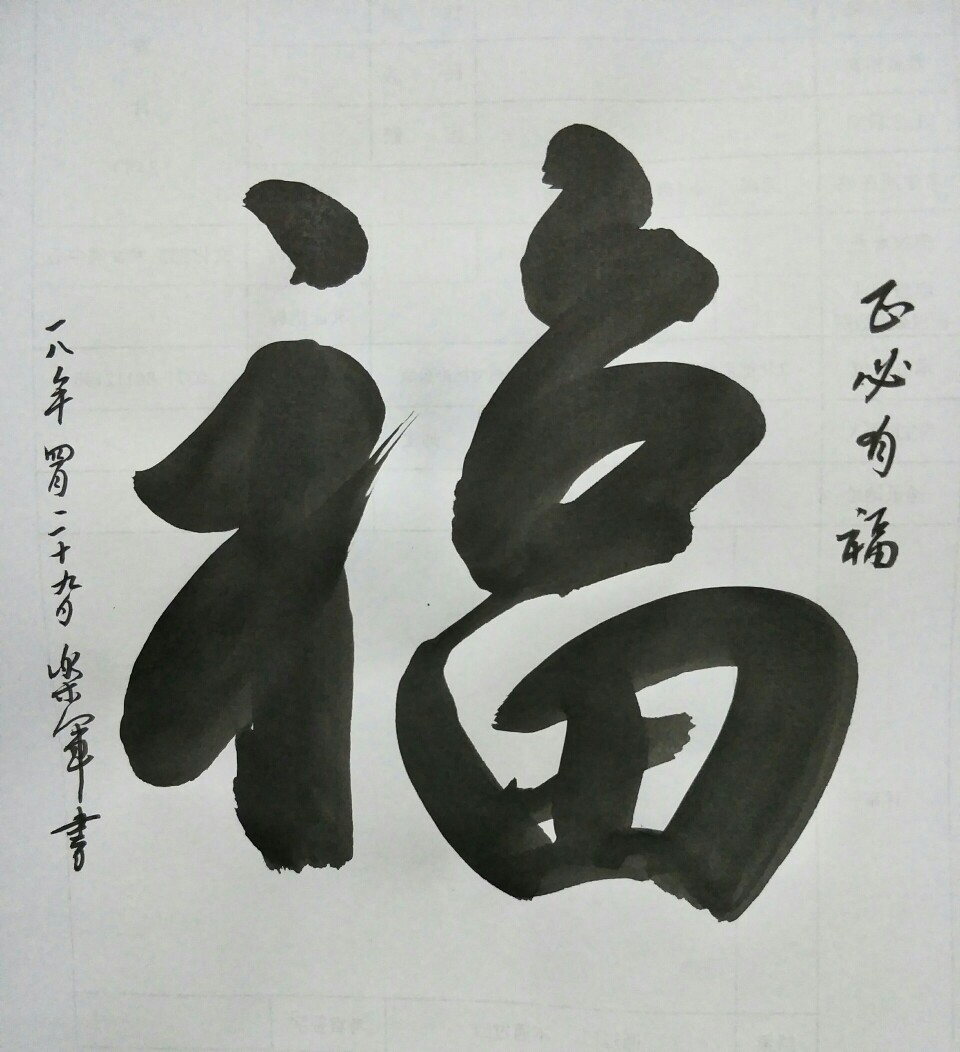 正必有福
福
一八年四月二十九日樂軍書